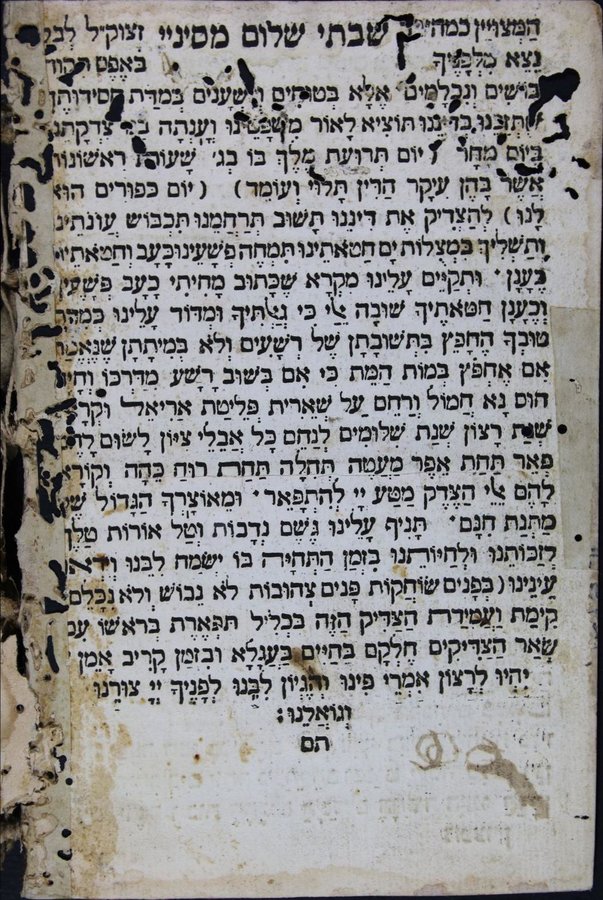 המצויין שבתי שלום מסיניי זצוק״ל
נֵצֵא מִלְּפָנֶיךָ בְּאֶפֶס
וְנִכְלָמִים אֶלָּא בְּטוּחִים בְּמִדַּת חֲסִידוּתֶךָ
תּוֹצִיא לָאוֹר וְעָנְתָה
בְּיוֹם מָחָר ( יוֹם תְּרוּעַת מֶלֶךְ בּוֹ בְּג׳ שָׁעוֹת רִאשׁוֹנוֹת
אֲשֶׁר בָּהֶן עִיקַר הַדִּין תָּלוּי וְעוֹמֵד ) ( יוֹם כִּפּוּרִים הוּא
לָנוּ ) לְהַצְדִּיק אֶת דִּינֵנוּ תָּשׁוּב תְּרַחֲמֵנוּ תִּכְבּוֹשׁ עֲוֹנֹתֵינוּ
וְתַשְׁלִיךְ בִּמְצֻלוֹת יָם חַטֹּאתֵינוּ תִּמְחֶה פְּשָׁעֵינוּ כָּעָב וְחַטֹּאתֵינוּ
כֶּעָנָן ׳ וּתְקַיֵּים עָלֵינוּ מִקְרָא שֶׁכָּתוּב מָחִיתִי כָעָב פְּשָׁעֶיךָ
וְכֶעָנָן חַטֹּאתֶיךָ שׁוּבָה אֵלַי כִּי גְאַלְתִּיךָ וּמִדּוֹר עָלֵינוּ
טוּבְךָ הֶחָפֵץ בִּתְשׁוּבָתָן שֶׁל רְשָׁעִים וְלֹא בְּמִיתָתָן שֶׁנֶּאֱמַר
אִם אֶחְפֹּץ בְּמוֹת הַמֵּת כִּי אִם בְּשׁוּב רָשָׁע מִדַּרְכּוֹ וְחָיָה
חוּס נָא חֲמוֹל וְרַחֵם עַל שְׁאֵרִית פְּלֵיטַת אֲרִיאֵל וּקְרָא
שְׁנַת רָצוֹן שְׁנַת שִׁלּוּמִים לְנַחֵם כָּל אֲבֵלֵי צִיּוֹן לָשׂוּם לָהֶם
פְּאֵר תַּחַת אֵפֶר מַעֲטֵה תְהִלָּה תַּחַת רוּחַ כֵּהָה וְקוֹרָא
לָהֶם אֵלֵי הַצֶּדֶק מַטַּע יְיָ לְהִתְפָּאֵר ׳ וּמֵאוֹצָרְךָ הַגָּדוֹל שֶׁל
מַתְּנַת חִנָּם ׳ תָּנִיף עָלֵינוּ גֶּשֶׁם נְדָבוֹת וְטַל אוֹרוֹת טַלֶּךָ
לְזַכּוֹתֵנוּ וּלְחַיּוֹתֵנוּ בִּזְמַן הַתְּחִיָּה בּוֹ יִשְׂמַח לִבֵּנוּ
עֵינֵינוּ ( בְּפָנִים שׂוֹחֲקוֹת פָּנִים צְהוּבוֹת לֹא נֵבוֹשׁ וְלֹא נִכָּלֵם
קִימַת וַעֲמִידַת הַצַּדִּיק הַזֶּה בִּכְלִיל תִּפְאֶרֶת בְּרֹאשׁוֹ עִם
שְׁאָר הַצַּדִּיקִים חֶלְקָם בַּחַיִּים בַּעֲגָלָא וּבִזְמַן קָרִיב אָמֵן
יִהְיוּ לְרָצוֹן אִמְרֵי פִינוּ וְהֶגְיוֹן לִבֵּנוּ לְפָנֶיךָ יְיָ צוּרֵנוּ
וְגוֹאֲלֵנוּ׃
תם